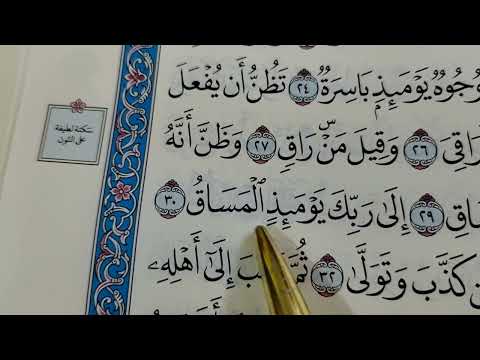 وُجُوهٌ يَوْمَئِذٍۭ بَاسِرَةٌ ٢٤ تَظُنُّ أَن يُفْعَلَ
رَاقِىَ ٢٦ وَقِيلَ مَنْۜ رَاقٍ ٢٧ وَظَنَّ أَنَّهُ
إِلَىٰ رَبِّكَ يَوْمَئِذٍ ٱلْمَسَاقُ ٣٠ ٢٩
كَذَّبَ وَتَوَلَّىٰ ٣٢ ثُمَّ إِلَىٰٓ أَهْلِهِۦ
سكتة لطيفة
على النون